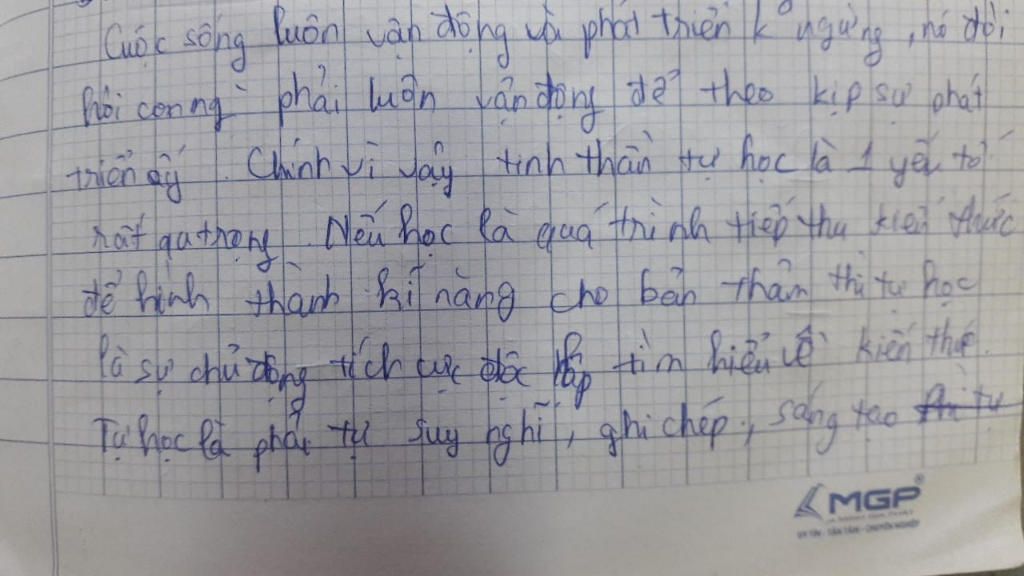 Cuộc sống luôn vận động và phát triển k ngừng, nó đòi
hỏi con ng` phải luôn vận động để theo kịp sự phát
triển ấy. Chính vì vậy tinh thần tự học là 1 yếu tố
rất qatrọng. Nếu học là quá trình tiếp thu kiến thức
để hình thành kĩ năng cho bản thân thì tự học
là sự chủ động tích cực độc lập tìm hiểu về kiến thức.
Tự học là phải tự suy nghĩ, ghi chép, sáng tạo
MGP
UY TÍN - TẬN TÂM - CHUYÊN NGHIỆP